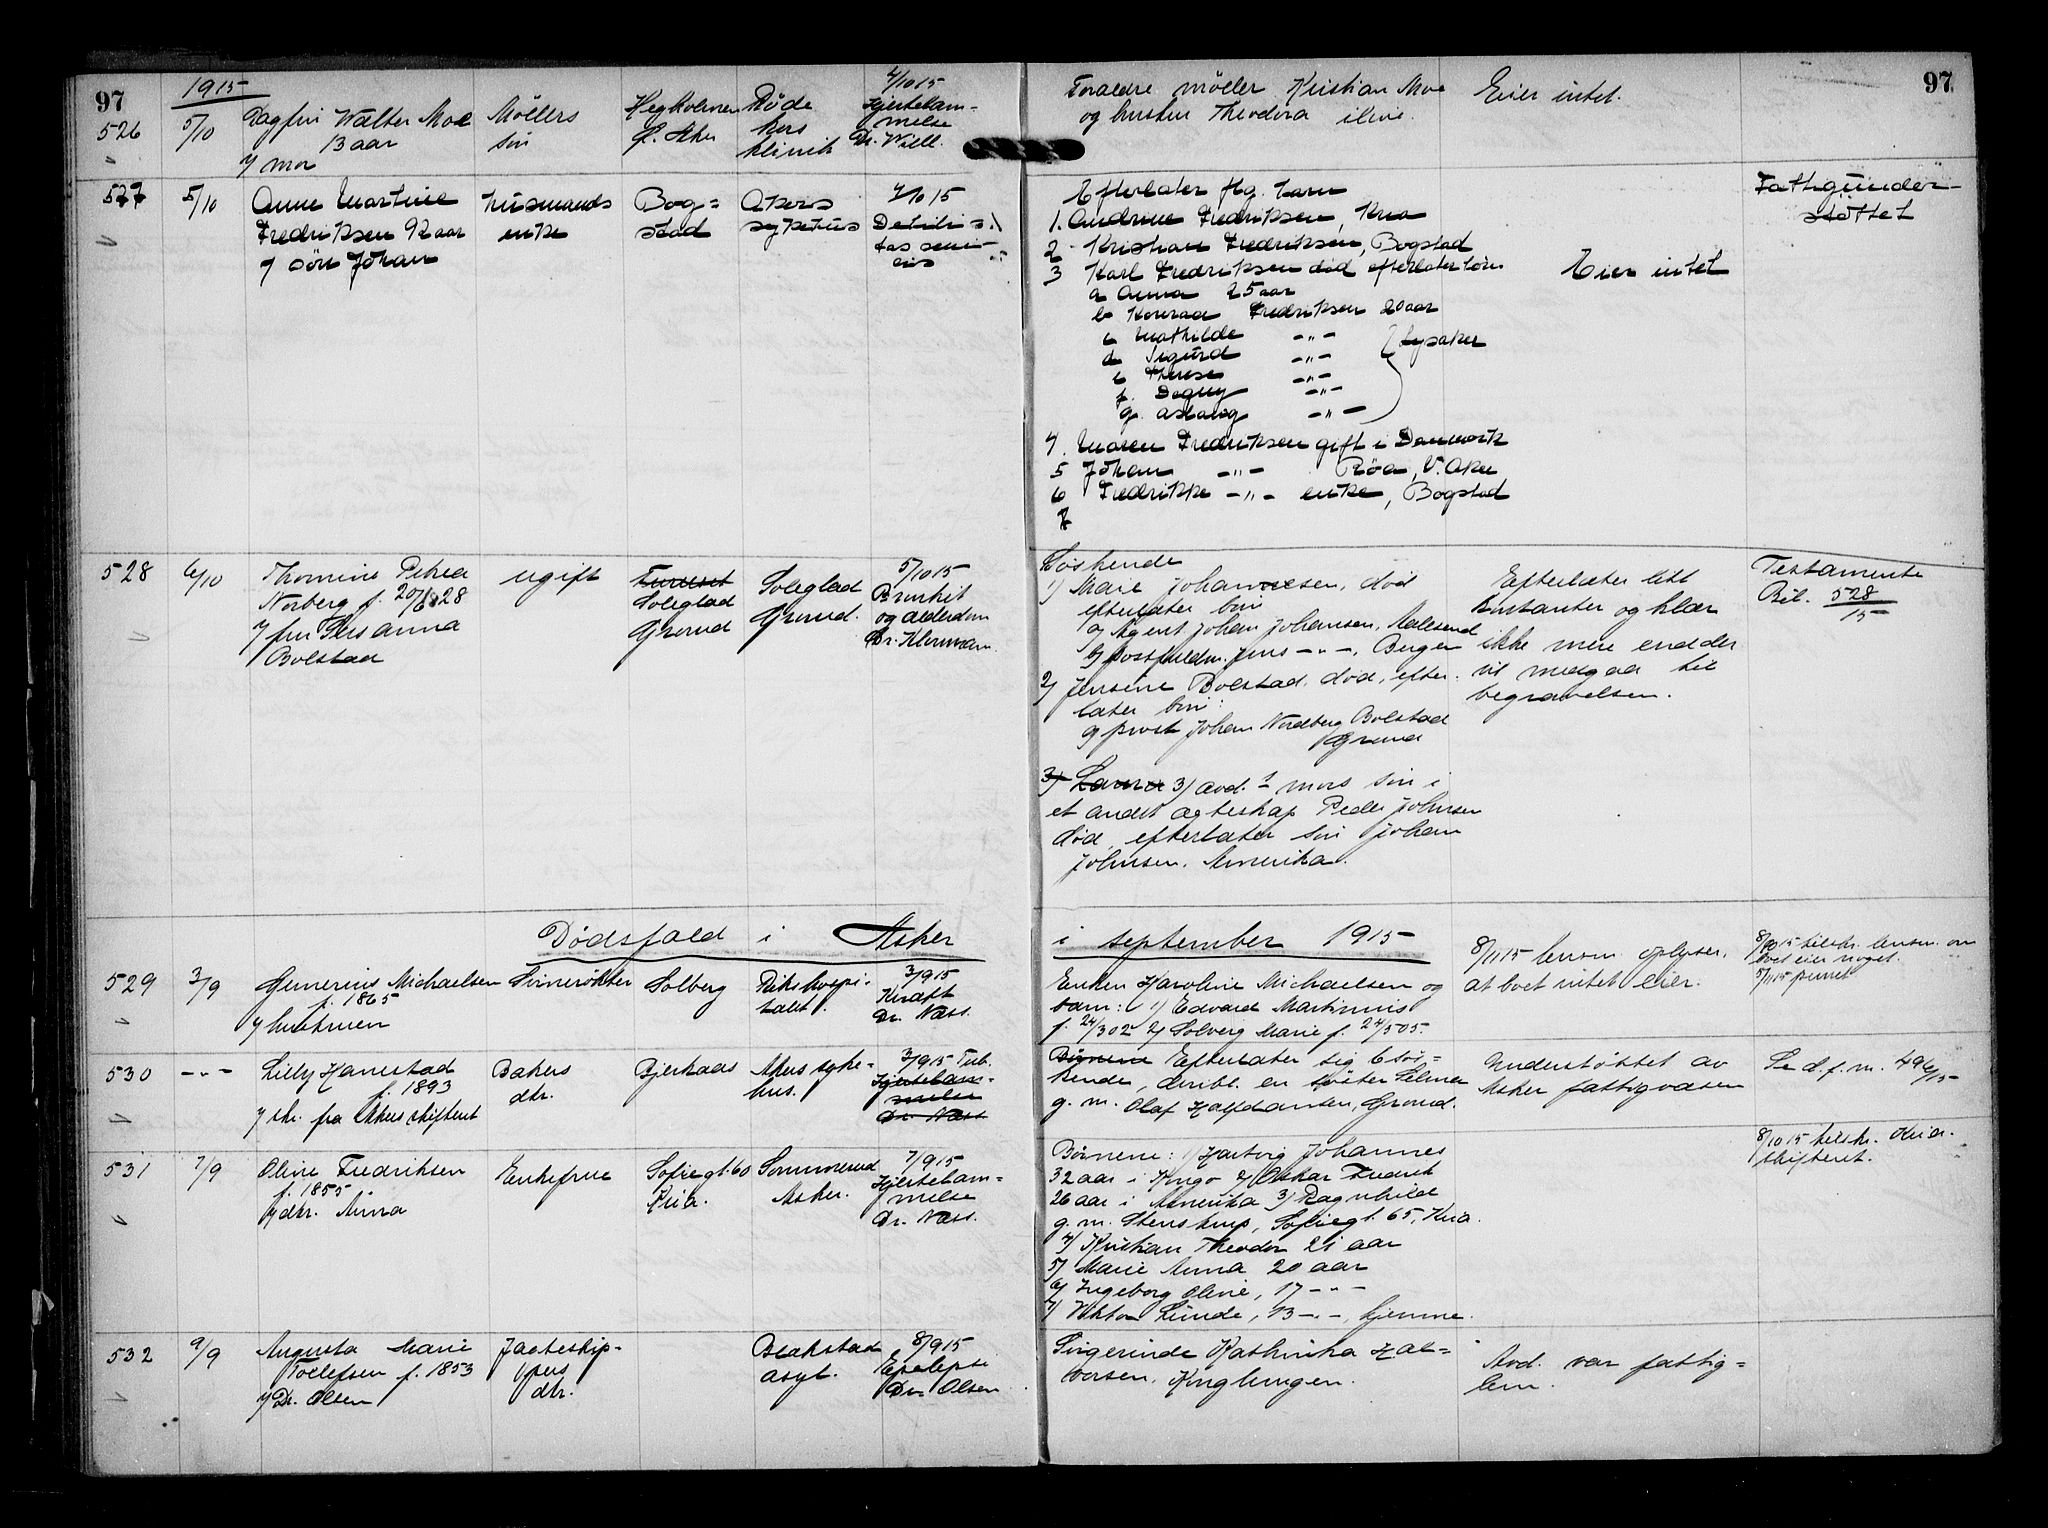 97
1915
526
5/10
Dagfin Walter Moe
13 aar
v/ mor
Møllers
søn
Hegholmen
Ø. Aker
Røde
kors
klinik
4/10 15
Hjertelam-
melse
Dr. Will.
Forældre møller Kristian Moe
og hustru Theodora ilive.
Eier intet.
97
527
5/10
Anne Martine
Fredriksen 92 aar
v/ søn Johan
Husmands
enke
Bog=
stad
Akers
sykehus
4/10 15
Debili-
tas seni-
lis
Efterlater flg. barn
1. Andrine Fredriksen, Kria
2 - Kristian Fredriksen, Bogstad
3 Karl Fredriksen død efterlater børn
a Anna 25 aar
b Konrad Fredriksen 20 aar
c Mathilde -"-
d Sigurd -"-
e Therese -"-
f. Dagny -"-
g. Aslaug -"-
Lysaker
4. Maren Fredriksen gift i Danmark
5 Johan -"- Røa, V. Aker
6 Fredrikke -"- enke, Bogstad
7
Eier intet
Fattigunder-
støttet
528
6/10
Thomine Petrea
Norberg f. 20/6 28
v/ fru Susanna
Bolstad
ugift
Furuset
Soleglad
Grorud
Soleglad
Grorud.
5/10 15
Bronkit
og alderdom
Dr. Klouman.
Søskende
1) Marie Johannesen, død
efterlater børn
a) Agent Johan Johansen, Aalesund
b) postfuldm. Jens -"-, Bergen
2) Jensine Bolstad, død, efter-
later børn:
a) prost Johan Nordberg Bolstad
Grorud
3) Laura 3) avd.s mors søn i
et andet egteskap Peder Johnsen
død, efterlater søn Johan
Johnsen, Amerika.
Efterlater litt
kontanter og klær
ikke mere end der
vil medgaa til
begravelsen.
Testamente
Bil. 528/15
Dødsfald i Asker
i september 1915
529
3/9
Gunerius Michaelsen
f. 1865
v/ hustruen
Svinerøkter
Solberg
Rikshospi-
talet.
3/9 15
Kræft
Dr. Næss.
Enken Karoline Michaelsen og
barn: 1) Edvard Martinius
f. 24/3 02 2) Solveig Marie f. 24/5 05.
8/11 15 lensm. oplyser,
at boet intet eier.
8/10 15 tilskr. lensm. om
boet eier noget.
5/11 15 purret
530
-"-
Lilly Hanestad
f. 1893
v/ skr. fra Akers skifterett
Bakers
dtr.
Bjerkaas
Akers syke-
hus.
3/9 15 Tub.
Hjertelam-
melse
Dr. Næss
Børnene Efterlater sig 6 søs-
kende, deribl. en søster Selma
g. m. Olaf Halfdansen, Grorud.
Understøttet av
Asker fattigvæsen
Se d.f.m. 496/15
531
7/9
Oline Fredriksen
f. 1855
v/ dtr. Anna
Enkefrue
Sofiegt. 60
Kria.
Sommerud
Asker.
7/9 15
Hjertelam=
melse
Dr. Næss.
Børnene: 1) Hartvig Johannes
32 aar i Kongo 2) Oskar Fredrik
26 aar i Amerika 3) Ragnhild
g. m. Stenstrup, Sofiegt. 65, Kria.
4) Kristian Theodor 21 aar
5) Marie Anna 20 aar
6) Ingeborg Oline, 17 -"-
7) Viktor Lunde, 13 -"-, hjemme.
8/10 15 tilskr. Kria.
skifteret.
532
9/9
Augusta Marie
Tollefsen f. 1853
v/ Dr. Olsen
Jagteskip-
pers
dtr.
Blakstad
asyl.
8/9 15
Epelepsi
Dr. Olsen
Svigerinde Kathinka Hal=
vorsen, Konglungen.
Avd. var fattig=
lem.